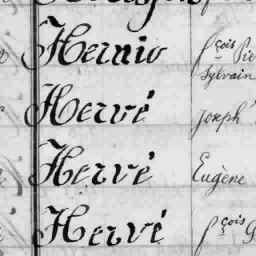 Hernio fçois Pie
Sylvain
Hervé Joseph
Hervé Eugène
Hervé fçois G